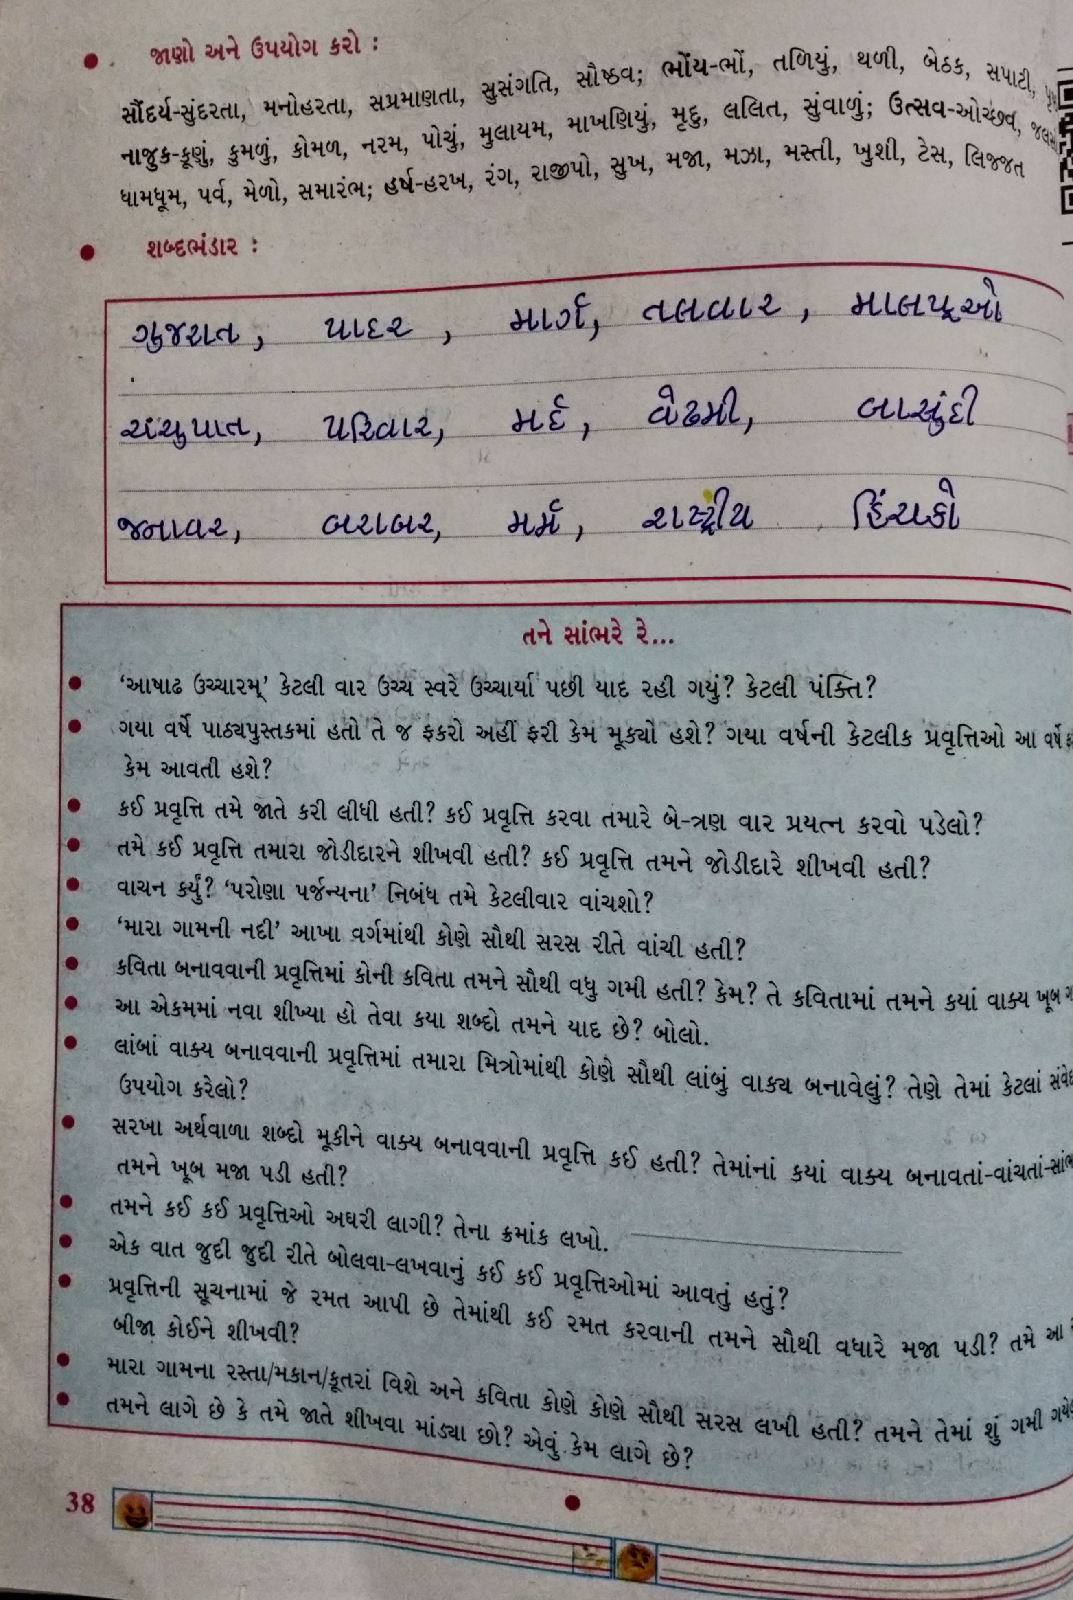 જાણો અને ઉપયોગ કરો :
સૌંદર્ય-સુંદરતા, મનોહરતા, સપ્રમાણતા, સુસંગતિ, સૌષ્ઠવ; ભોંય-ભોં, તળિયું, થળી, બેઠક, સપાટી,
નાજુક-કૂણું, કુમળું, કોમળ, નરમ, પોચું, મુલાયમ, માખણિયું, મૃદુ, લલિત, સુંવાળું; ઉત્સવ-ઓચ્છવ,
ધામધૂમ, પર્વ, મેળો, સમારંભ; હર્ષ-હરખ, રંગ, રાજીપો, સુખ, મજા, મઝા, મસ્તી, ખુશી, ટેસ, લિજ્જત
શબ્દભંડાર :
ગુજરાત, પાદર, માર્ગ, તલવાર, માલપૂઓ
ચંચુપાત, પરિવાર, મર્દ, વેઢમી, બાસુંદી
જનાવર, બરાબર, મર્મ, રાષ્ટ્રીય હિંચકો
તને સાંભરે રે...
‘આષાઢ ઉચ્ચારમ્’ કેટલી વાર ઉચ્ચ સ્વરે ઉચ્ચાર્યા પછી યાદ રહી ગયું? કેટલી પંક્તિ?
ગયા વર્ષે પાઠ્યપુસ્તકમાં હતો તે જ ફકરો અહીં ફરી કેમ મૂક્યો હશે? ગયા વર્ષની કેટલીક પ્રવૃત્તિઓ આ વર્ષે
કેમ આવતી હશે?
કઈ પ્રવૃત્તિ તમે જાતે કરી લીધી હતી? કઈ પ્રવૃત્તિ કરવા તમારે બે-ત્રણ વાર પ્રયત્ન કરવો પડેલો?
તમે કઈ પ્રવૃત્તિ તમારા જોડીદારને શીખવી હતી? કઈ પ્રવૃત્તિ તમને જોડીદારે શીખવી હતી?
વાચન કર્યું? ‘પરોણા પર્જન્યના’ નિબંધ તમે કેટલીવાર વાંચશો?
‘મારા ગામની નદી’ આખા વર્ગમાંથી કોણે સૌથી સરસ રીતે વાંચી હતી?
કવિતા બનાવવાની પ્રવૃત્તિમાં કોની કવિતા તમને સૌથી વધુ ગમી હતી? કેમ? તે કવિતામાં તમને કયાં વાક્ય ખૂબ
આ એકમમાં નવા શીખ્યા હો તેવા કયા શબ્દો તમને યાદ છે? બોલો.
લાંબાં વાક્ય બનાવવાની પ્રવૃત્તિમાં તમારા મિત્રોમાંથી કોણે સૌથી લાંબું વાક્ય બનાવેલું? તેણે તેમાં કેટલાં
ઉપયોગ કરેલો?
સરખા અર્થવાળા શબ્દો મૂકીને વાક્ય બનાવવાની પ્રવૃત્તિ કઈ હતી? તેમાંનાં કયાં વાક્ય બનાવતાં-વાંચતાં-
તમને ખૂબ મજા પડી હતી?
તમને કઈ કઈ પ્રવૃત્તિઓ અઘરી લાગી? તેના ક્રમાંક લખો.
એક વાત જુદી જુદી રીતે બોલવા-લખવાનું કઈ કઈ પ્રવૃત્તિઓમાં આવતું હતું?
પ્રવૃત્તિની સૂચનામાં જે રમત આપી છે તેમાંથી કઈ રમત કરવાની તમને સૌથી વધારે મજા પડી? તમે આ
બીજા કોઈને શીખવી?
મારા ગામના રસ્તા/મકાન/કૂતરાં વિશે અને કવિતા કોણે કોણે સૌથી સરસ લખી હતી? તમને તેમાં શું ગમી
તમને લાગે છે કે તમે જાતે શીખવા માંડ્યા છો? એવું કેમ લાગે છે?
38